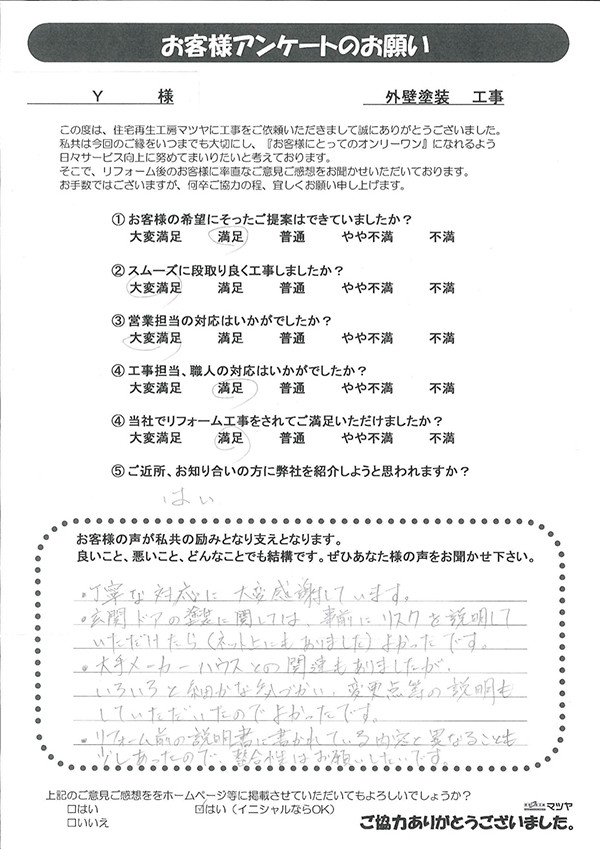 お客様アンケートのお願い
Y 様 外壁塗装 工事
この度は、住宅再生工房マツヤに工事をご依頼いただきまして誠にありがとうございました。
私共は今回のご縁をいつまでも大切にし、『お客様にとってのオンリーワン』になれるよう
日々サービス向上に努めてまいりたいと考えております。
そこで、リフォーム後のお客様に率直なご意見ご感想をお聞かせいただいております。
お手数ではございますが、何卒ご協力の程、宜しくお願い申し上げます。
① お客様の希望にそったご提案はできていましたか？
大変満足 満足 普通 やや不満 不満
② スムーズに段取り良く工事しましたか？
大変満足 満足 普通 やや不満 不満
③ 営業担当の対応はいかがでしたか？
大変満足 満足 普通 やや不満 不満
④ 工事担当、職人の対応はいかがでしたか？
大変満足 満足 普通 やや不満 不満
④ 当社でリフォーム工事をされてご満足いただけましたか？
大変満足 満足 普通 やや不満 不満
⑤ ご近所、お知り合いの方に弊社を紹介しようと思われますか？
はい
お客様の声が私共の励みとなり支えとなります。
良いこと、悪いこと、どんなことでも結構です。ぜひあなた様の声をお聞かせ下さい。
・丁寧な対応に大変感謝しています。
・玄関ドアの塗装に関しては、事前にリスクを説明して
いただけたら（ネット上にもありました）よかったです。
・大手メーカーハウスとの関連もありましたが、
いろいろと細かな気づかい、変更点等の説明も
していただいたのでよかったです。
・リフォーム前の説明書に書かれている内容と異なることも
少しあったので、整合性はお願いしたいです。
上記のご意見ご感想ををホームページ等に掲載させていただいてもよろしいでしょうか？
□はい ☑はい（イニシャルならOK）
□いいえ
マツヤ
ご協力ありがとうございました。